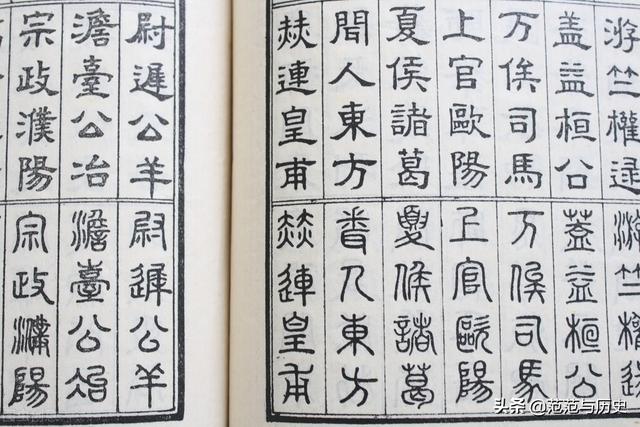 游竺權逯
盖益桓公
万俟司馬
上官歐陽
夏侯諸葛
聞人東方
赫連皇甫
游竺權逯
蓋益桓公
万俟司馬
上官歐陽
夏侯諸葛
聞人東方
赫連皇甫
尉遲公羊
澹臺公冶
宗政濮陽
尉遲公羊
澹臺公冶
宗政濮陽
头条 @范范与历史